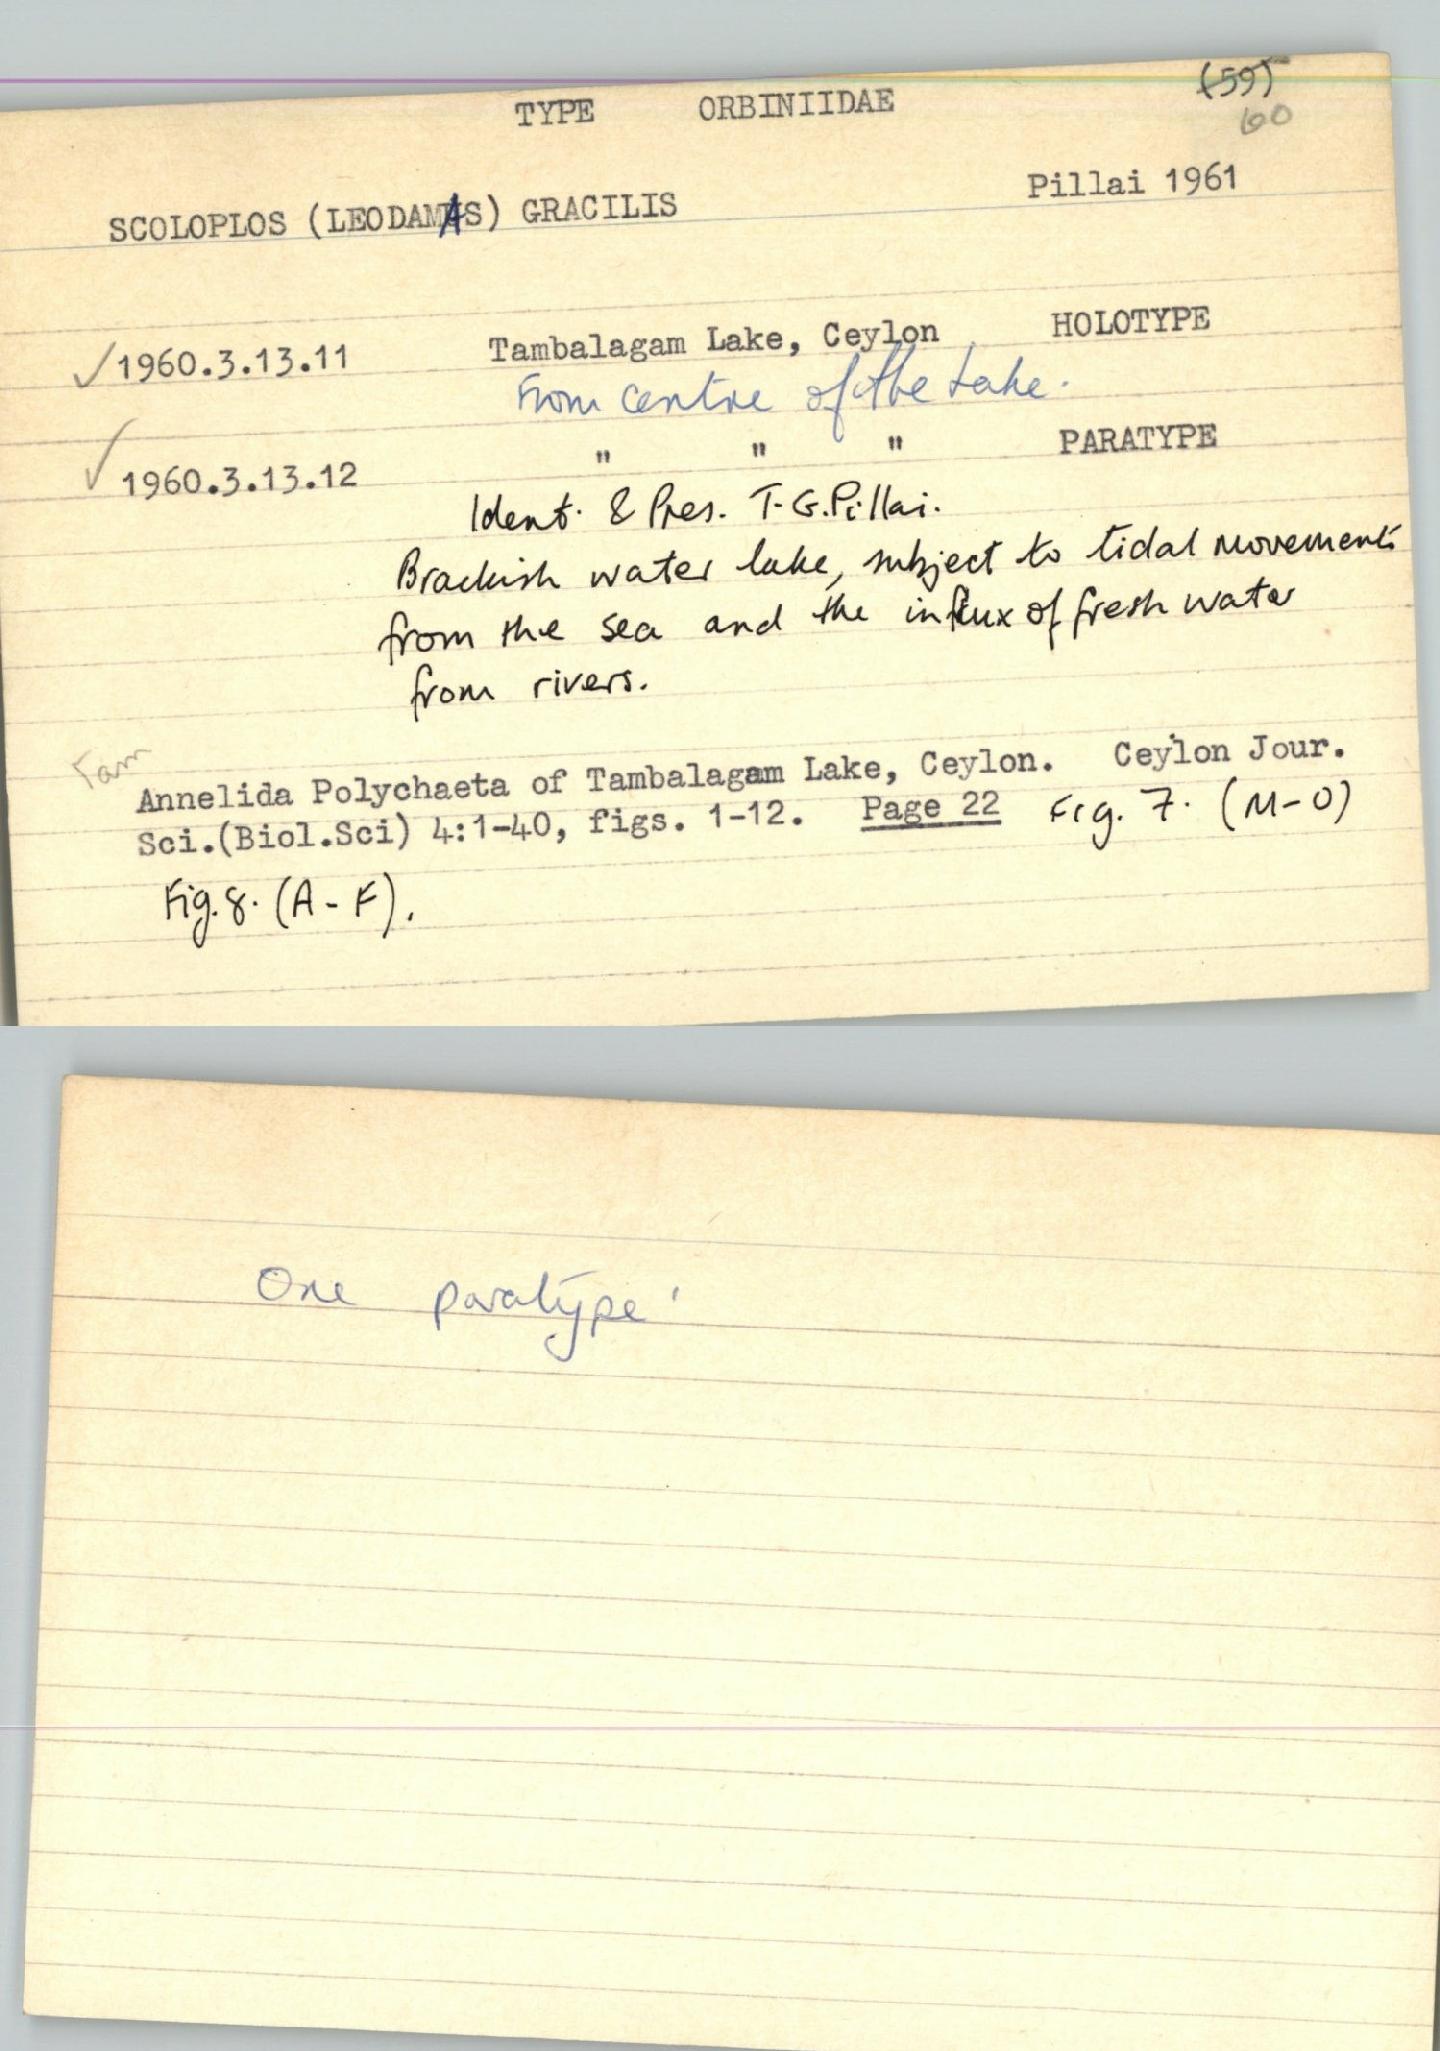 TYPE ORBINIIDAE (59)
60
SCOLOPLOS (LEODAMAS) GRACILIS Pillai 1961
✓1960.3.13.11 Tambalagam Lake, Ceylon HOLOTYPE
From centre of the Lake.
✓1960.3.13.12 " " " PARATYPE
Ident. & Pres. T.G.Pillai.
Brackish water lake, subject to tidal movements
from the sea and the influx of fresh water
from rivers.
Fam
Annelida Polychaeta of Tambalagam Lake, Ceylon. Ceylon Jour.
Sci.(Biol.Sci) 4:1-40, figs. 1-12. Page 22 Fig. 7. (M-O)
Fig. 8. (A-F).
One paratype.